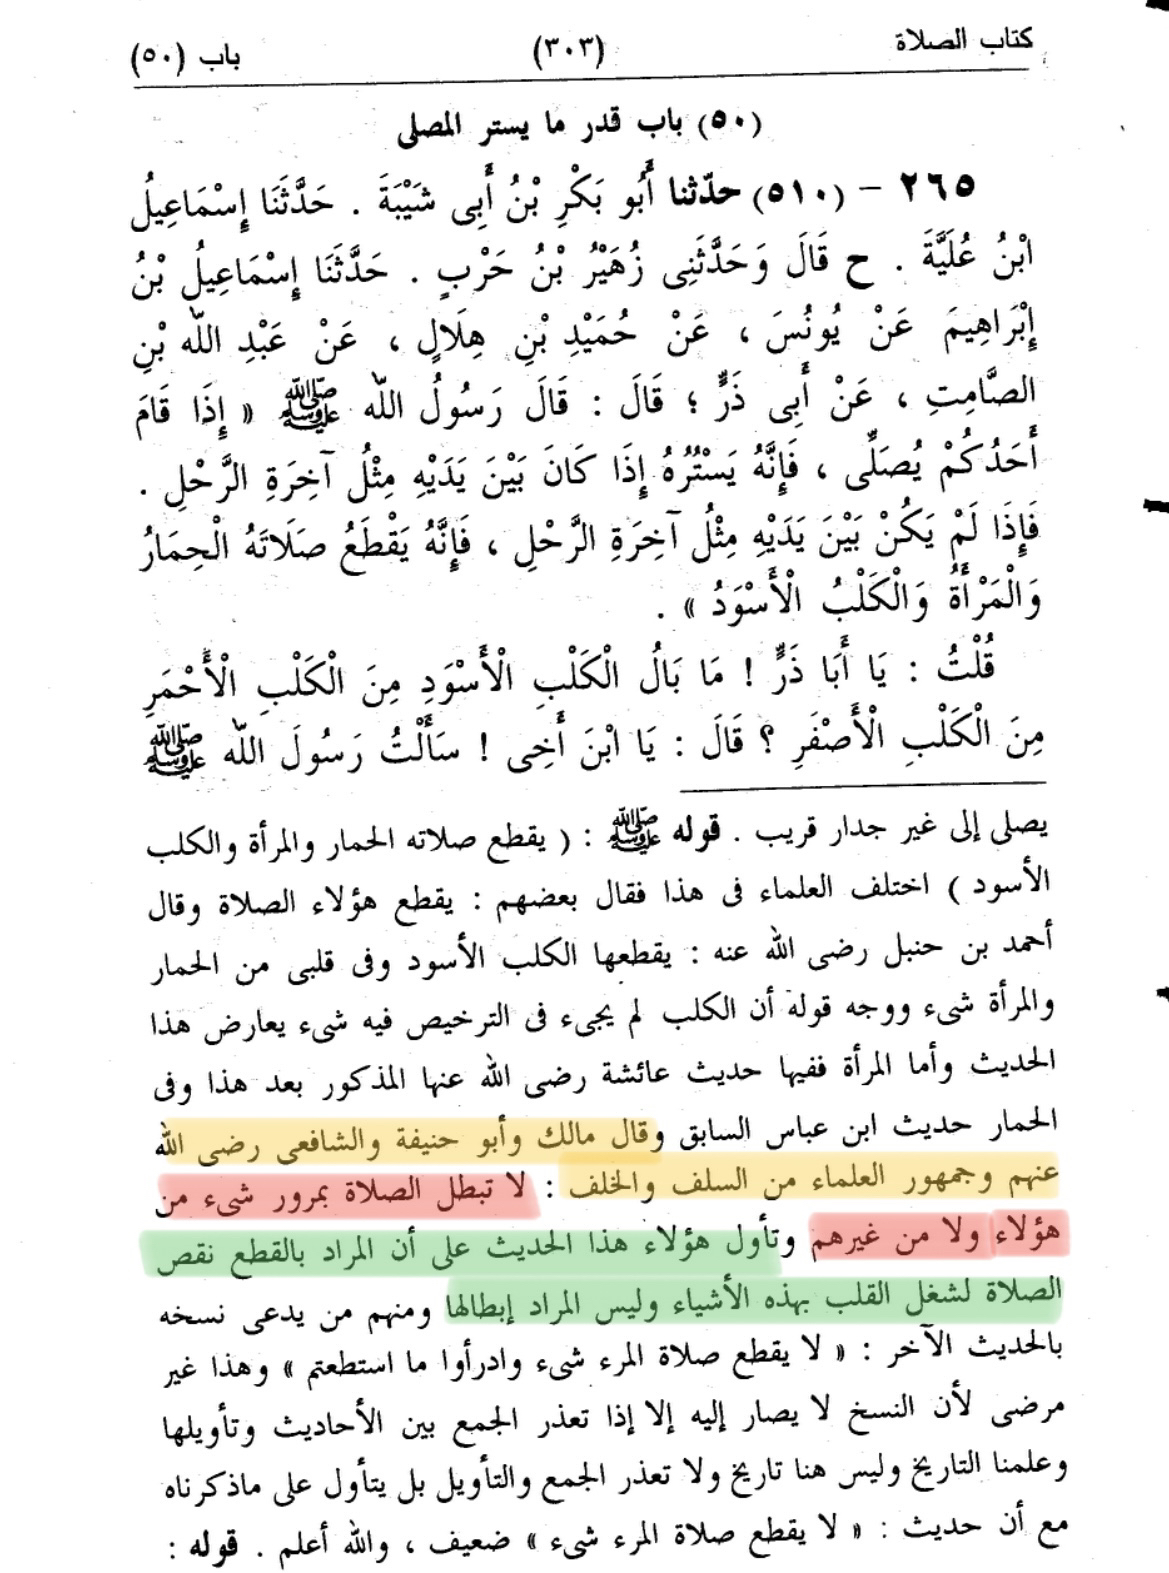 كتاب الصلاة (٣٠٣) باب (٥٠)
(٥٠) باب قدر ما يستر المصلى
٢٦٥ – (٥١٠) حدّثنا أَبُو بَكْرِ بْنُ أَبِى شَيْبَةَ . حَدَّثَنَا إِسْمَاعِيلُ
ابْنُ عُلَيَّةَ . ح قَالَ وَحَدَّثَنِى زُهَيْرُ بْنُ حَرْبٍ . حَدَّثَنَا إِسْمَاعِيلُ بْنُ
إِبْرَاهِيمَ عَنْ يُونُسَ ، عَنْ حُمَيْدِ بْنِ هِلَالٍ ، عَنْ عَبْدِ اللّه بْنِ
الصَّامِتِ ، عَنْ أَبِى ذَرٍّ ؛ قَالَ : قَالَ رَسُولُ اللّه ﷺ « إِذَا قَامَ
أَحَدُكُمْ يُصَلِّى ، فَإِنَّهُ يَسْتُرُهُ إِذَا كَانَ بَيْنَ يَدَيْهِ مِثْلُ آخِرَةِ الرَّحْلِ .
فَإِذَا لَمْ يَكُنْ بَيْنَ يَدَيْهِ مِثْلُ آخِرَةِ الرَّحْلِ ، فَإِنَّهُ يَقْطَعُ صَلَاتَهُ الْحِمَارُ
وَالْمَرْأَةُ وَالْكَلْبُ الْأَسْوَدُ » .
قُلْتُ : يَا أَبَا ذَرٍّ ! مَا بَالُ الْكَلْبِ الْأَسْوَدِ مِنَ الْكَلْبِ الْأَحْمَرِ
مِنَ الْكَلْبِ الْأَصْفَرِ ؟ قَالَ : يَا ابْنَ أَخِى ! سَأَلْتُ رَسُولَ اللّه ﷺ
يصلى إلى غير جدار قريب . قوله ﷺ : ( يقطع صلاته الحمار والمرأة والكلب
الأسود ) اختلف العلماء فى هذا فقال بعضهم : يقطع هؤلاء الصلاة وقال
أحمد بن حنبل رضى الله عنه : يقطعها الكلب الأسود وفى قلبى من الحمار
والمرأة شىء ووجه قوله أن الكلب لم يجىء فى الترخيص فيه شىء يعارض هذا
الحديث وأما المرأة ففيها حديث عائشة رضى الله عنها المذكور بعد هذا وفى
الحمار حديث ابن عباس السابق وقال مالك وأبو حنيفة والشافعى رضى الله
عنهم وجمهور العلماء من السلف والخلف : لا تبطل الصلاة بمرور شىء من
هؤلاء ولا من غيرهم وتأول هؤلاء هذا الحديث على أن المراد بالقطع نقص
الصلاة لشغل القلب بهذه الأشياء وليس المراد إبطالها ومنهم من يدعى نسخه
بالحديث الآخر : « لا يقطع صلاة المرء شىء وادرأوا ما استطعتم » وهذا غير
مرضى لأن النسخ لا يصار إليه إلا إذا تعذر الجمع بين الأحاديث وتأويلها
وعلمنا التاريخ وليس هنا تاريخ ولا تعذر الجمع والتأويل بل يتأول على ماذكرناه
مع أن حديث : « لا يقطع صلاة المرء شىء » ضعيف ، والله أعلم . قوله :